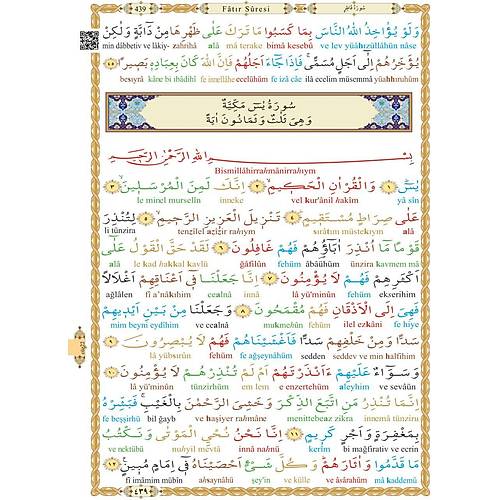 439 Fâtır Sûresi سُورَةُ فَاطِرٍ
وَلَوْ يُؤَاخِذُ اللّٰهُ النَّاسَ بِمَا كَسَبُوا مَا تَرَكَ عَلٰى ظَهْرِهَا مِنْ دَٓابَّةٍ وَلٰكِنْ
min dâbbetiv ve lâkiy- zahrihâ alâ mâ terake bimâ kesebû ve lev yüâhızüllâhün nâse
يُؤَخِّرُهُمْ اِلٰٓى اَجَلٍ مُسَمًّىۚ فَاِذَا جَٓاءَ اَجَلُهُمْ فَاِنَّ اللّٰهَ كَانَ بِعِبَادِه۪ بَص۪يرًا
besıyrâ kâne bi ıbâdihî fe innellâhe ecelühüm fe izâ câe ilâ ecelim müsemmâ yüahhıruhüm
سُورَةُ يٰسٓ مَكِّيَّةٌ
وَهِىَ ثَلٰثٌ وَثَمَانُونَ اٰيَةً
بِسْمِ اللّٰهِ الرَّحْمٰنِ الرَّح۪يمِ
Bismillâhirrahmânirrahıym
يٰسٓۚ ﴿١﴾ وَالْقُرْاٰنِ الْحَك۪يمِۙ ﴿٢﴾ اِنَّكَ لَمِنَ الْمُرْسَل۪ينَۙ ﴿٣﴾
le minel murselîn inneke vel kur'ânil hakîm yâ sîn
عَلٰى صِرَاطٍ مُسْتَق۪يمٍۜ ﴿٤﴾ تَنْز۪يلَ الْعَز۪يزِ الرَّح۪يمِۙ ﴿٥﴾ لِتُنْذِرَ
li tünzira tenzîlel azîzir rahıym sıratım müstekıym alâ
قَوْمًا مَٓا اُنْذِرَ اٰبَٓاؤُ۬هُمْ فَهُمْ غَافِلُونَ ﴿٦﴾ لَقَدْ حَقَّ الْقَوْلُ عَلٰٓى
alâ le kad hakkal kavlü ğâfilûn fehüm âbâühüm ünzira kavmem mâ
اَكْثَرِهِمْ فَهُمْ لَا يُؤْمِنُونَ ﴿٧﴾ اِنَّا جَعَلْنَا ف۪ٓي اَعْنَاقِهِمْ اَغْلَالًا
ağlâlen fî a'nâkıhim cealnâ innâ lâ yü'minûn fehüm ekserihim
فَهِيَ اِلَى الْاَذْقَانِ فَهُمْ مُقْمَحُونَ ﴿٨﴾ وَجَعَلْنَا مِنْ بَيْنِ اَيْد۪يهِمْ
mim beyni eydîhim ve cealnâ mukmehûn fehüm ilel ezkâni fe hiye
سَدًّا وَمِنْ خَلْفِهِمْ سَدًّا فَاَغْشَيْنَاهُمْ فَهُمْ لَا يُبْصِرُونَ ﴿٩﴾
lâ yübsırûn fehüm fe ağşeynâhüm sedden seddev ve min halfihim
وَسَوَٓاءٌ عَلَيْهِمْ ءَاَنْذَرْتَهُمْ اَمْ لَمْ تُنْذِرْهُمْ لَا يُؤْمِنُونَ ﴿١٠﴾
lâ yü'minûn tünzirhüm em lem e enzertehüm aleyhim ve sevâün
اِنَّمَا تُنْذِرُ مَنِ اتَّبَعَ الذِّكْرَ وَخَشِيَ الرَّحْمٰنَ بِالْغَيْبِۚ فَبَشِّرْهُ
fe beşşirhü bil ğayb ve haşiyer rahmâne menittebeaz zikra innemâ tünziru
بِمَغْفِرَةٍ وَاَجْرٍ كَر۪يمٍ ﴿١١﴾ اِنَّا نَحْنُ نُحْيِ الْمَوْتٰى وَنَكْتُبُ
ve nektübü nuhyil mevtâ innâ nahnü kerîm bi mağfirativ ve ecrin
مَا قَدَّمُوا وَاٰثَارَهُمْۜ وَكُلَّ شَيْءٍ اَحْصَيْنَاهُ ف۪ٓي اِمَامٍ مُب۪ينٍ۟ ﴿١٢﴾
fî imâmim mübîn ahsaynâhü şey'in ve külle ve âsârahüm mâ kaddemû
٤٣٩